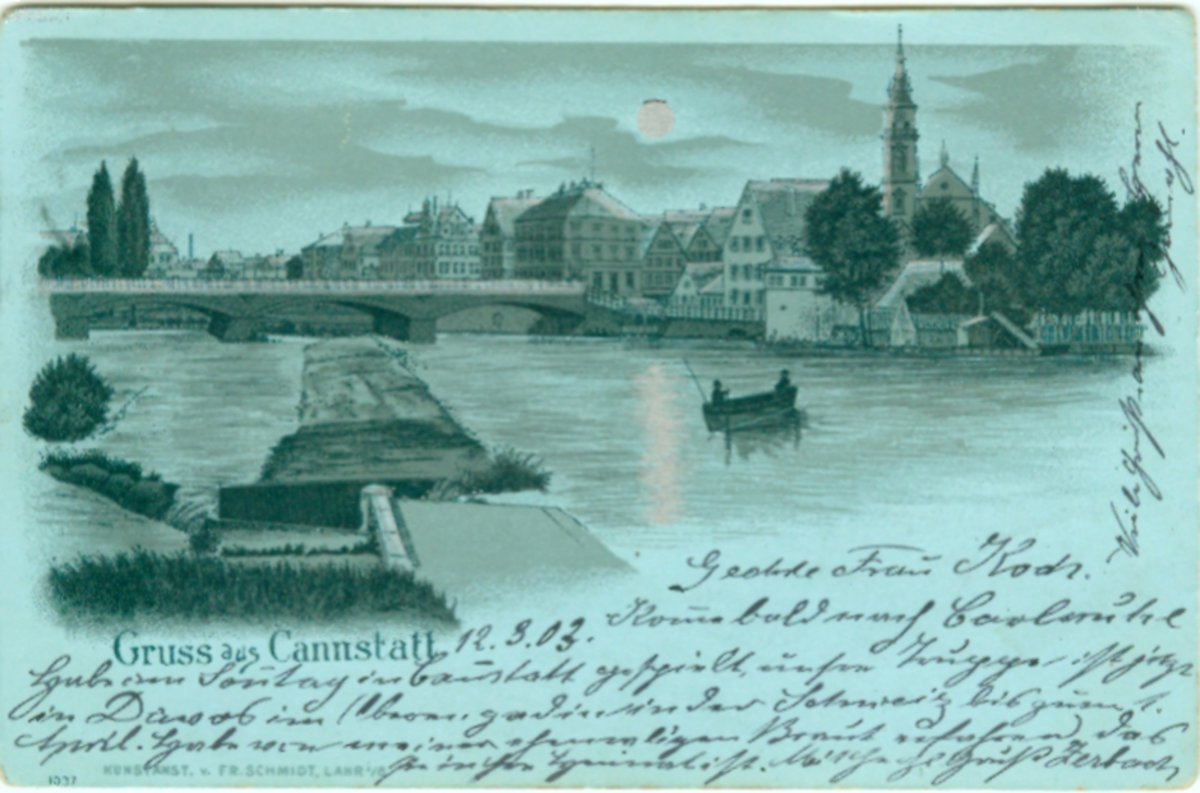 Gruss aus Cannstatt
12.3.03.
Geehrte Frau Koch.
Komme bald nach Carlsruhe
Habe am Sontag in Canstatt gespielt, unsre Truppe ist jetzt
in Davos im Oberen gadin in der Schweiz bis zum 1.
April. Habe von meiner ehemaligen Braut erfahren, das
sie in ist. Gruß Zerbach
Viele Grüße
KUNSTANST. v. FR. SCHMIDT, LAHR i/B
1037